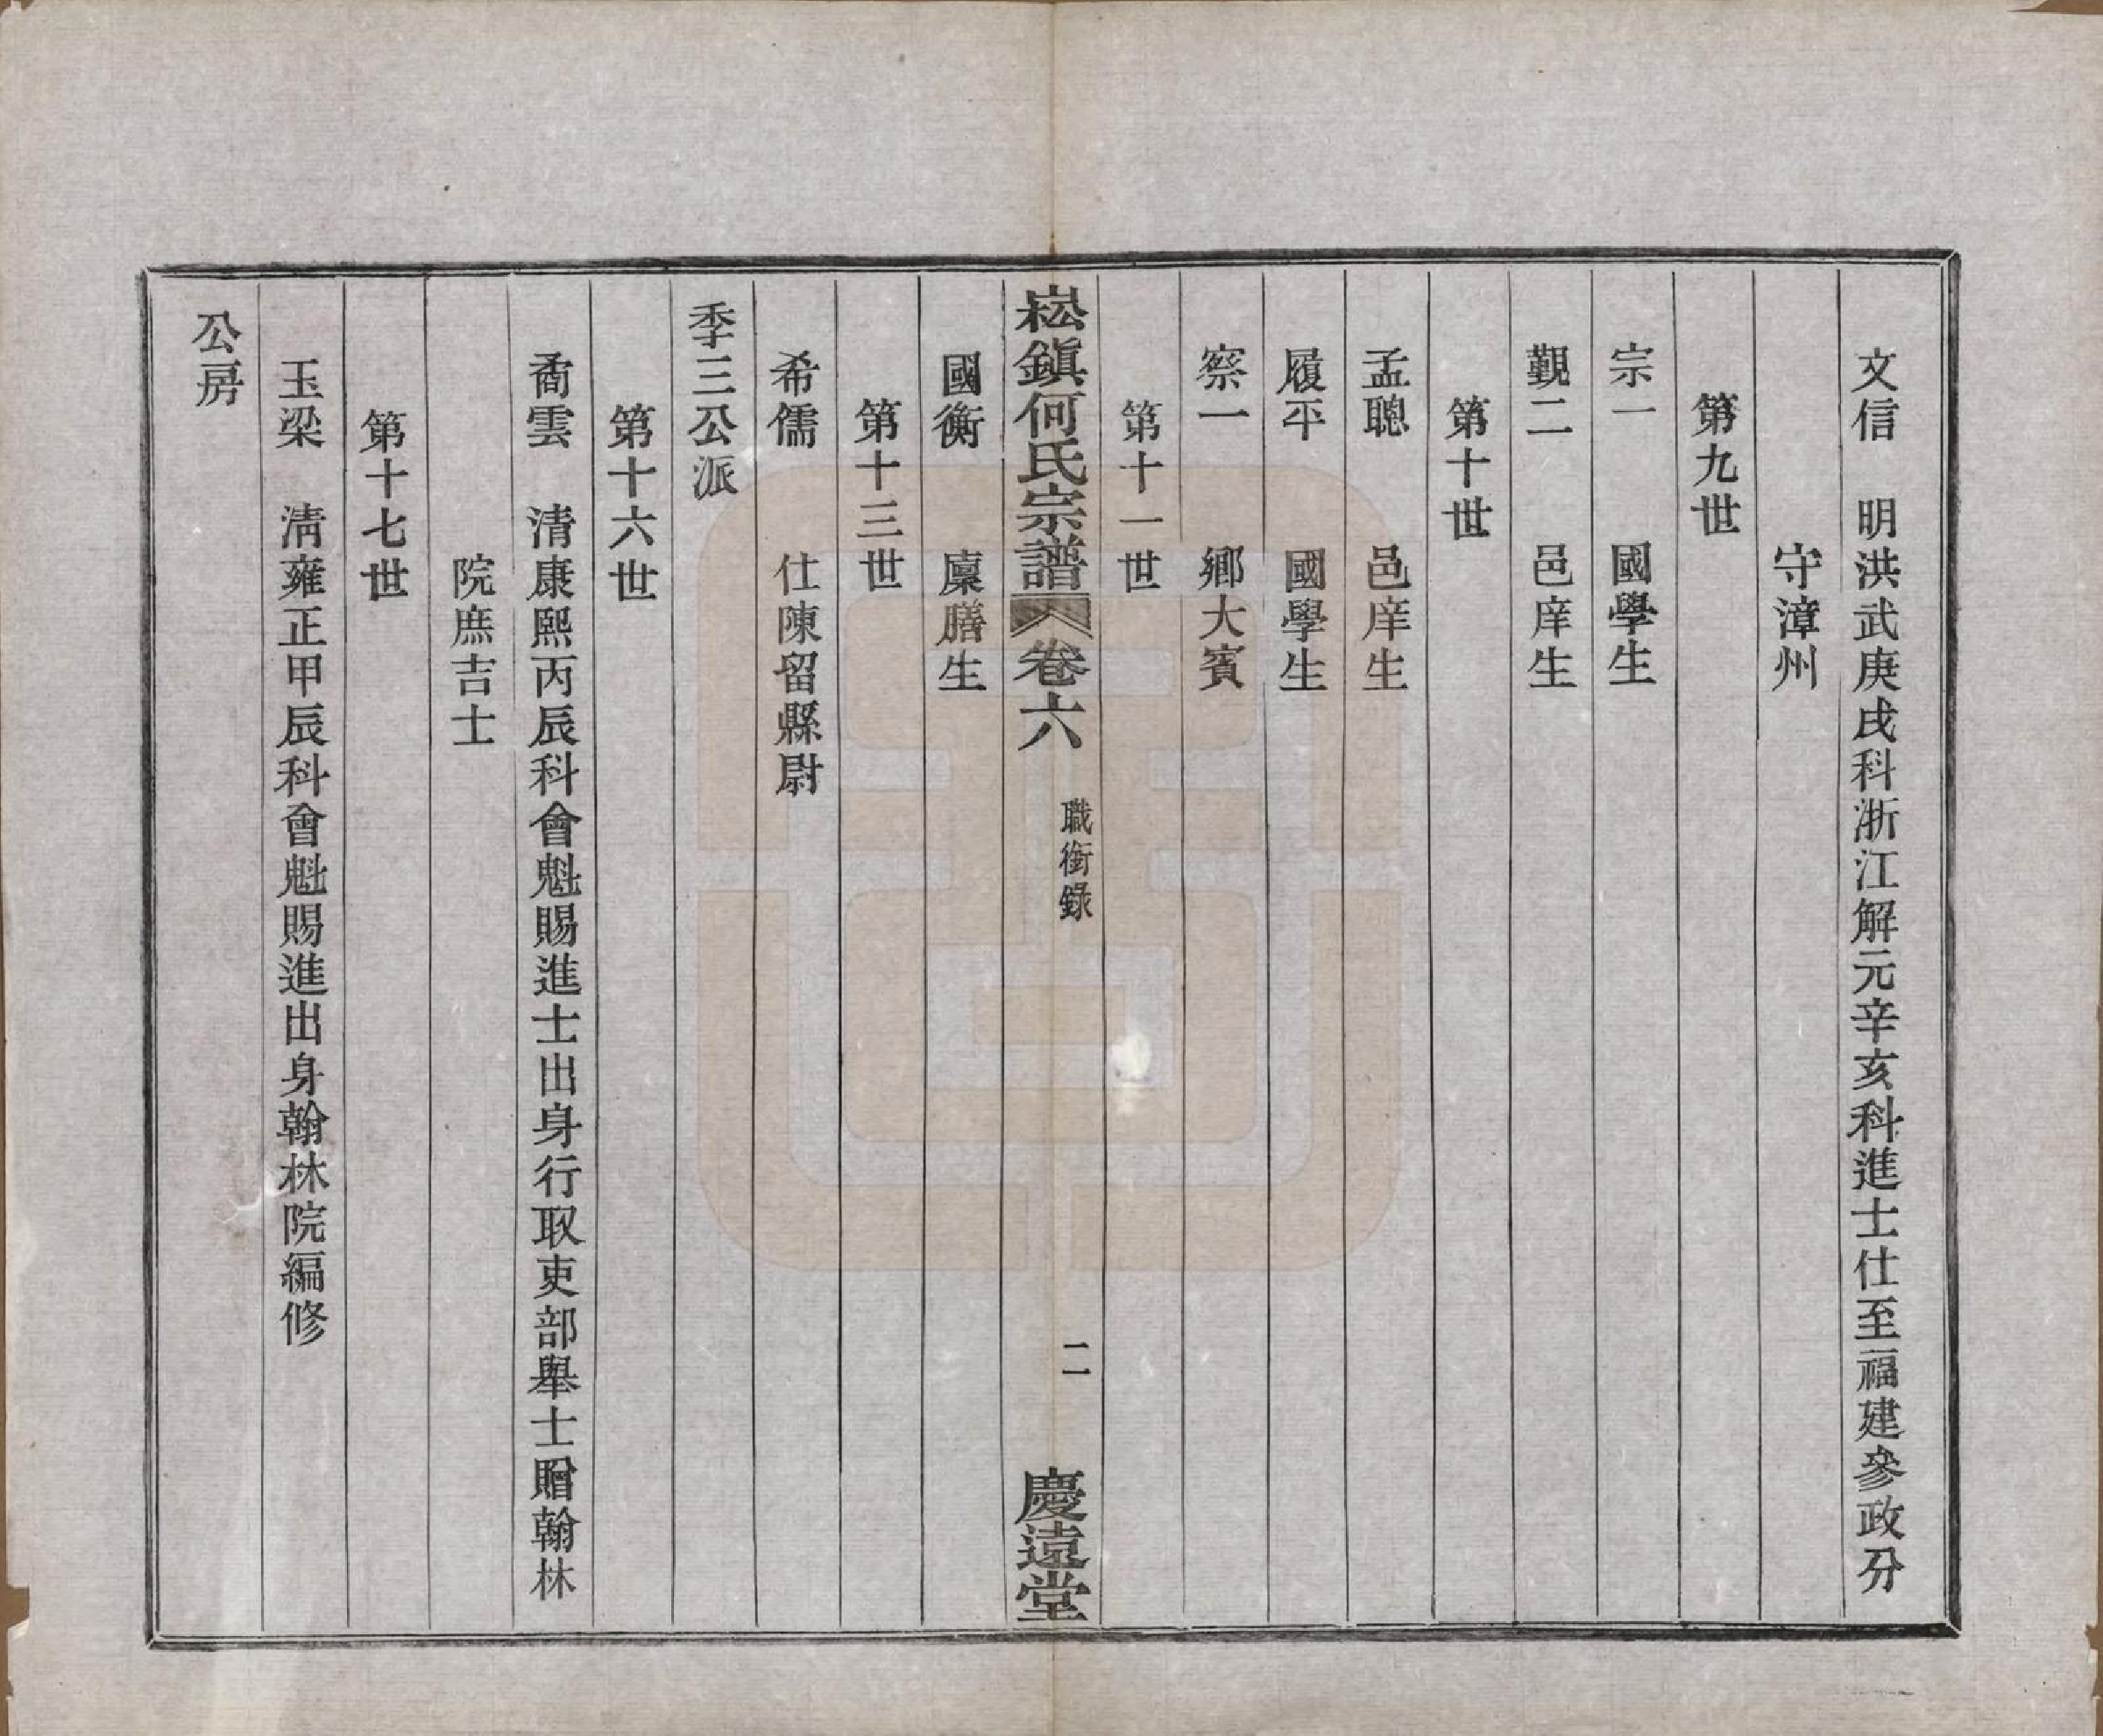 文信 明洪武庚戌科浙江解元辛亥科進士仕至福建參政分
守漳州
第九世
宗一 國學生
觀二 邑庠生
第十世
孟聰 邑庠生
履平 國學生
察一 鄉大賓
第十一世
崧鎮何氏宗譜 卷六 職銜錄 二 慶遠堂
國衡 廩膳生
第十三世
希儒 仕陳留縣尉
季三公派
第十六世
矞雲 清康熙丙辰科會魁賜進士出身行取吏部舉士贈翰林
院庶吉士
第十七世
玉梁 清雍正甲辰科會魁賜進出身翰林院編修
公房